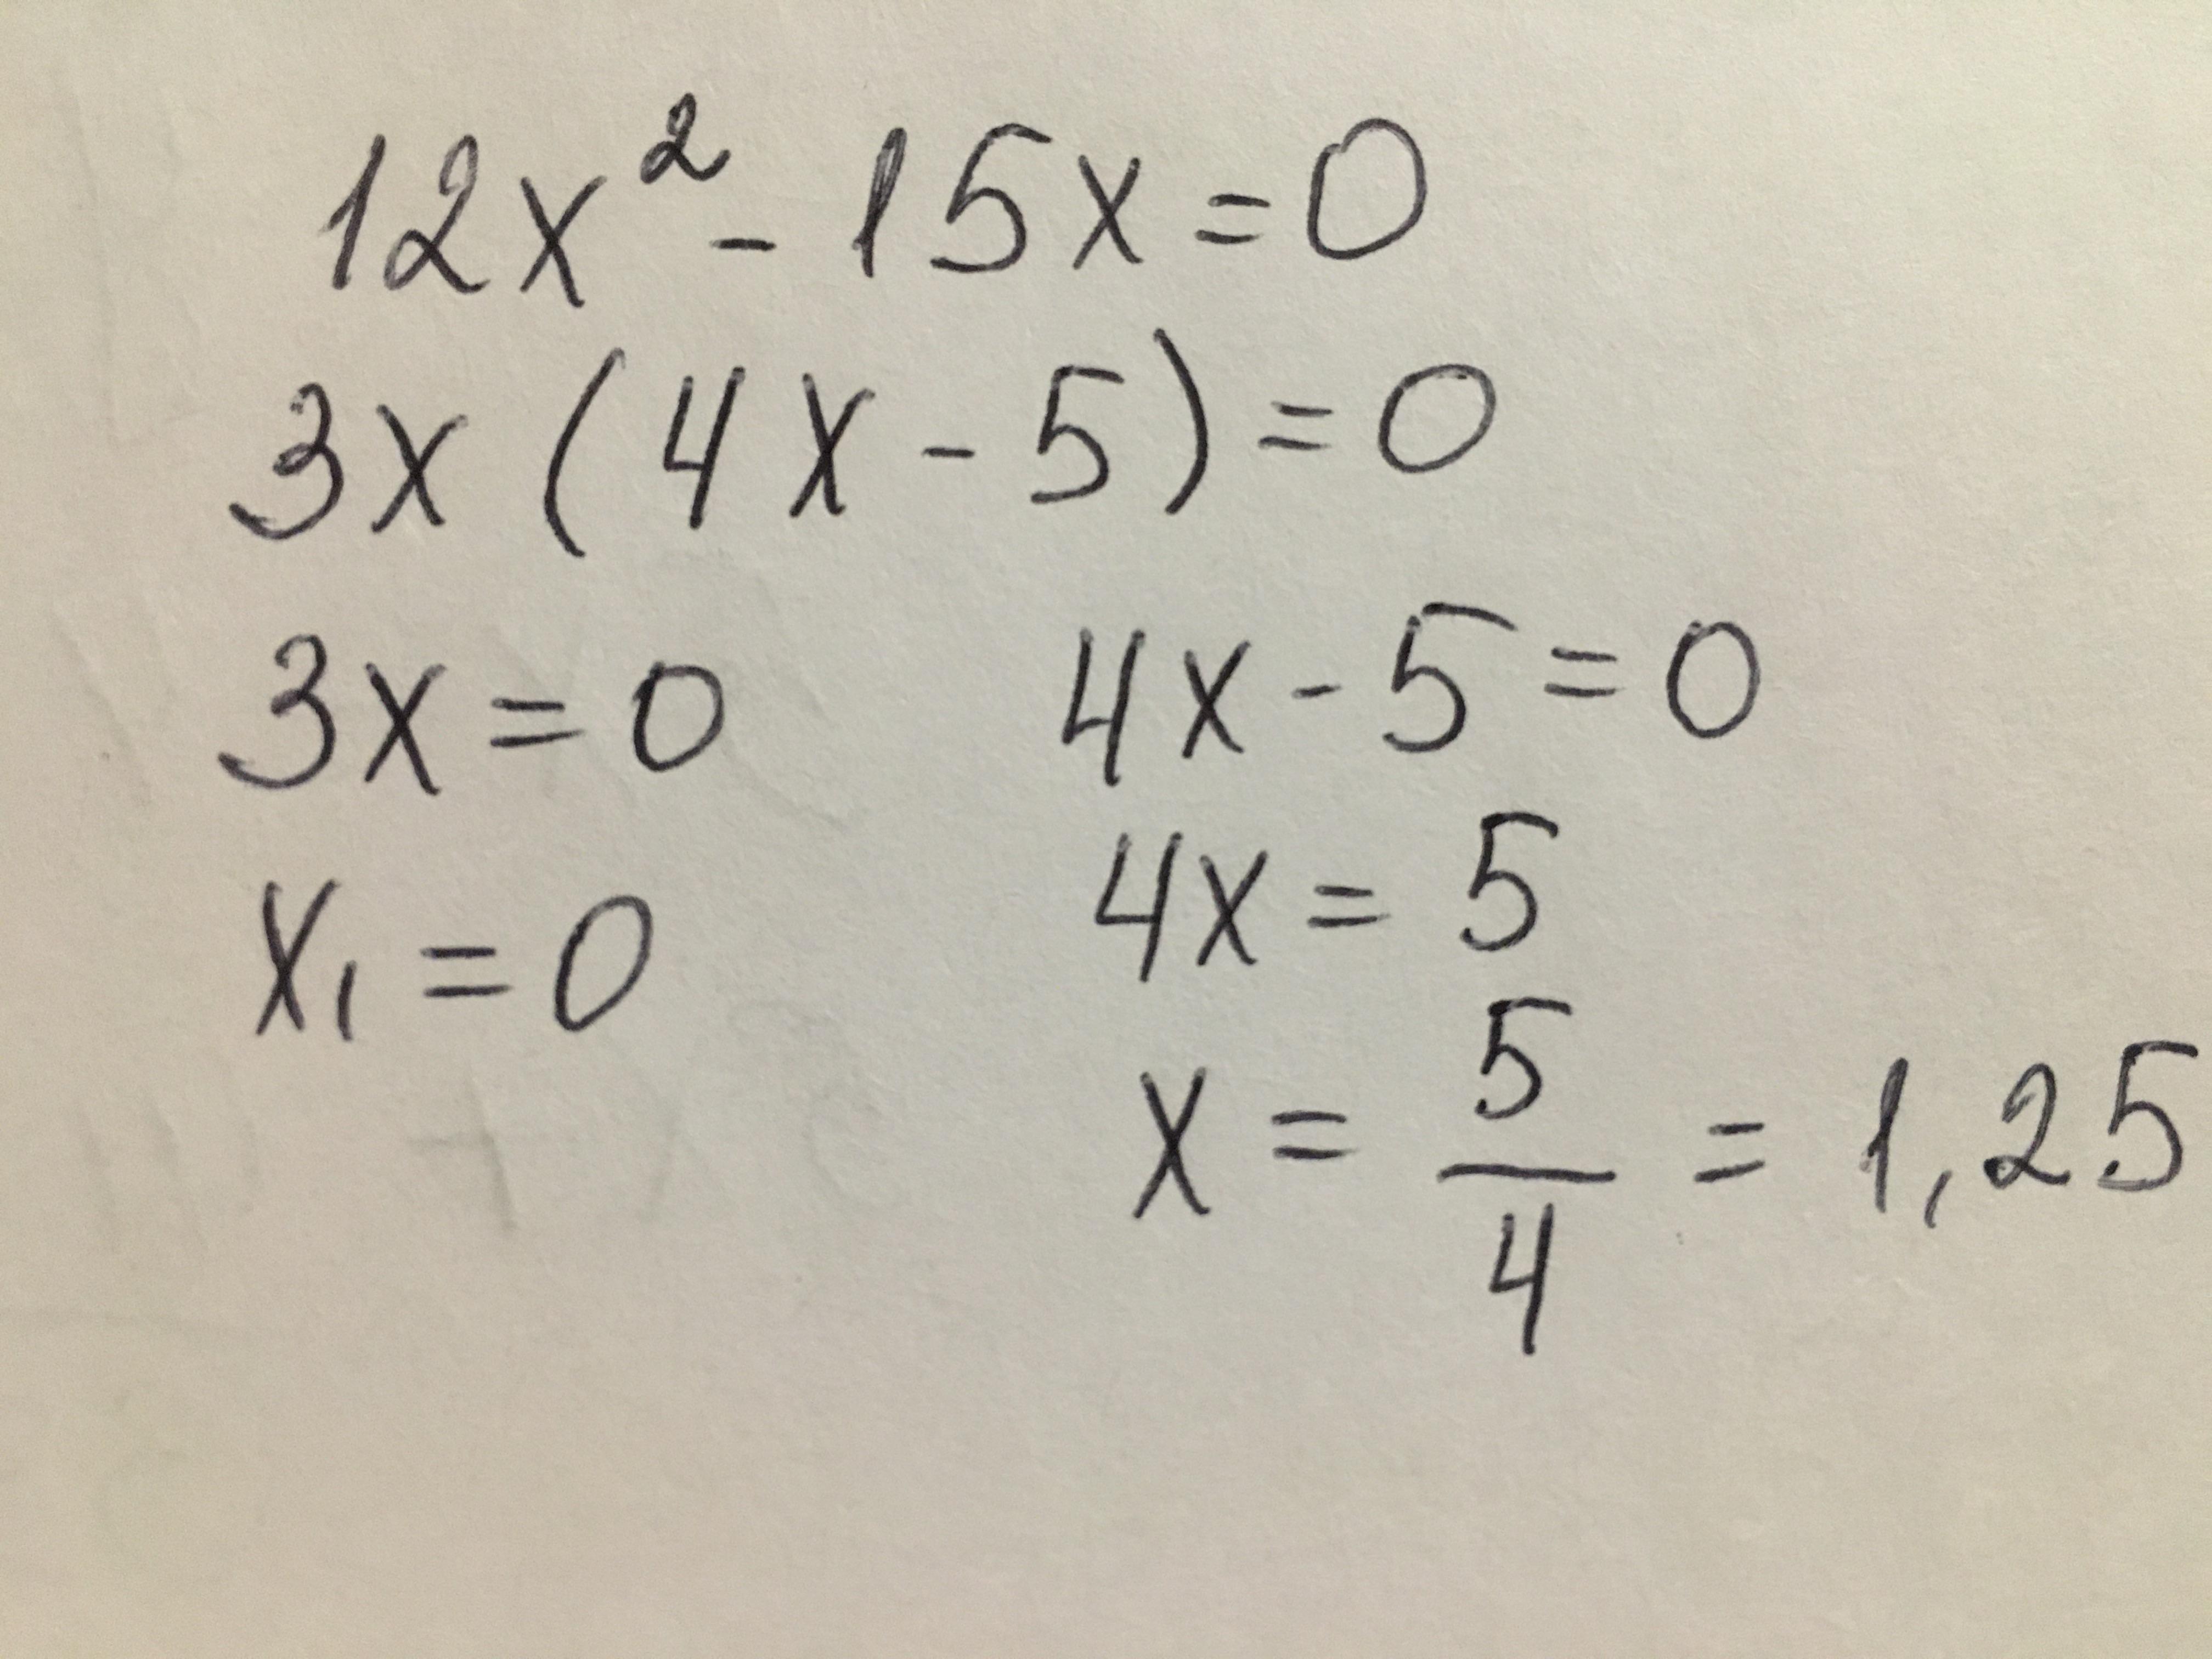 12x² - 15x = 0
3x (4x - 5) = 0
3x = 0
x₁ = 0
4x - 5 = 0
4x = 5
x = 5/4 = 1,25